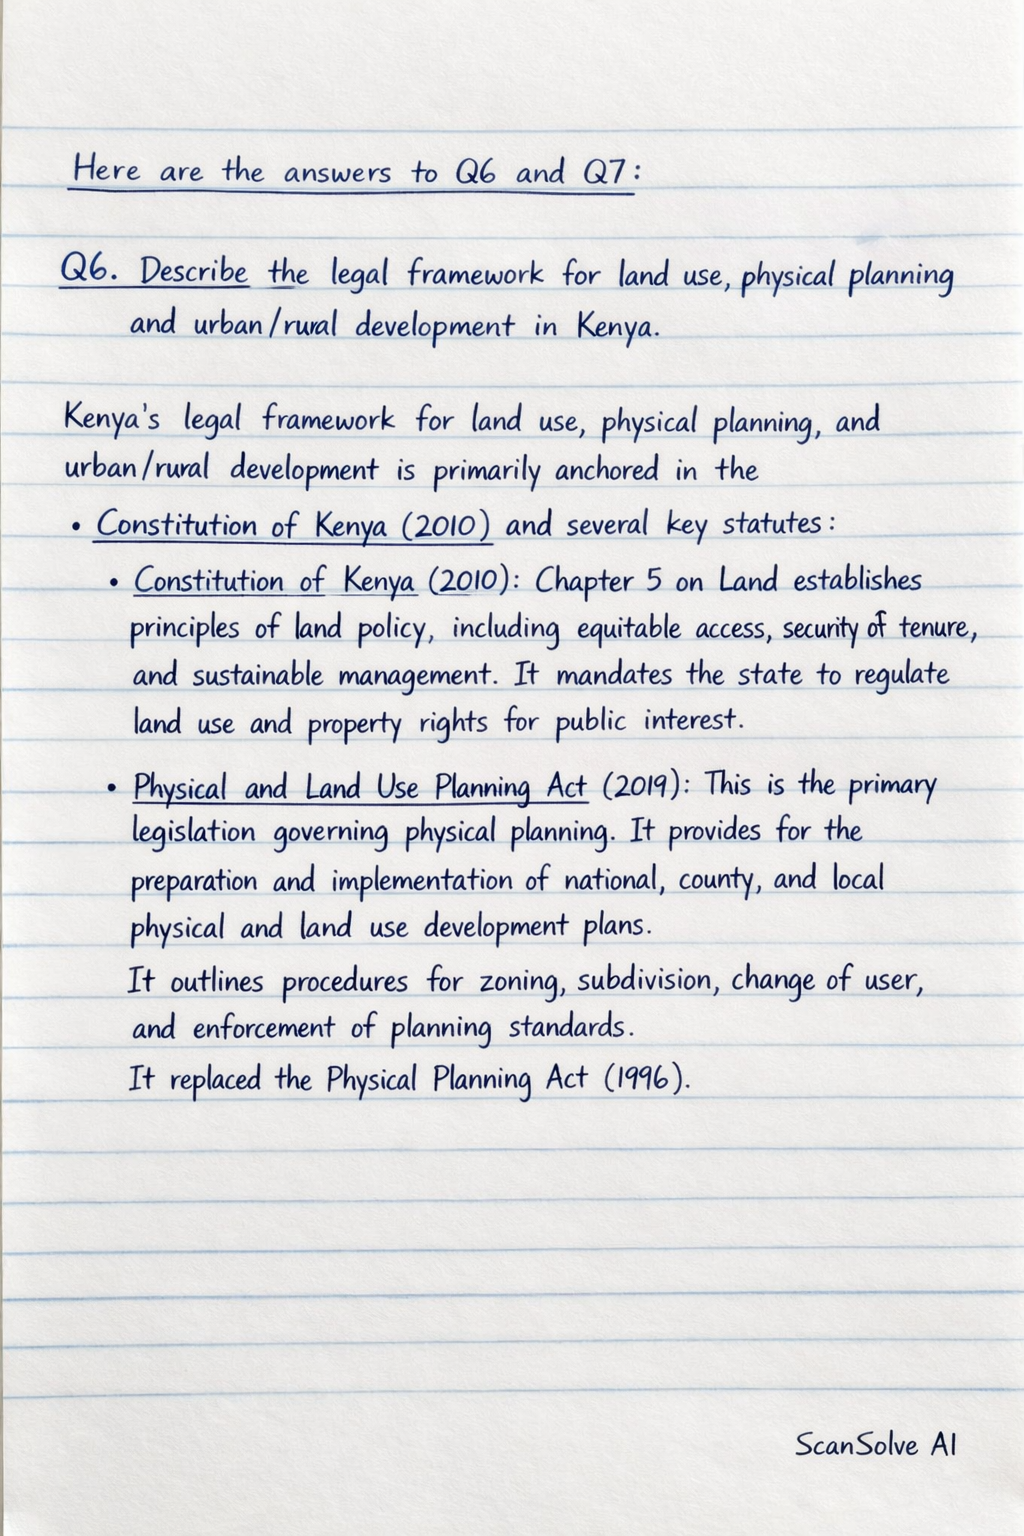 Here are the answers to Q6 and Q7:
Q6. Describe the legal framework for land use, physical planning
and urban/rural development in Kenya.
Kenya's legal framework for land use, physical planning, and
urban/rural development is primarily anchored in the
• Constitution of Kenya (2010) and several key statutes:
• Constitution of Kenya (2010): Chapter 5 on Land establishes
principles of land policy, including equitable access, security of tenure,
and sustainable management. It mandates the state to regulate
land use and property rights for public interest.
• Physical and Land Use Planning Act (2019): This is the primary
legislation governing physical planning. It provides for the
preparation and implementation of national, county, and local
physical and land use development plans.
It outlines procedures for zoning, subdivision, change of user,
and enforcement of planning standards.
It replaced the Physical Planning Act (1996).
ScanSolve AI